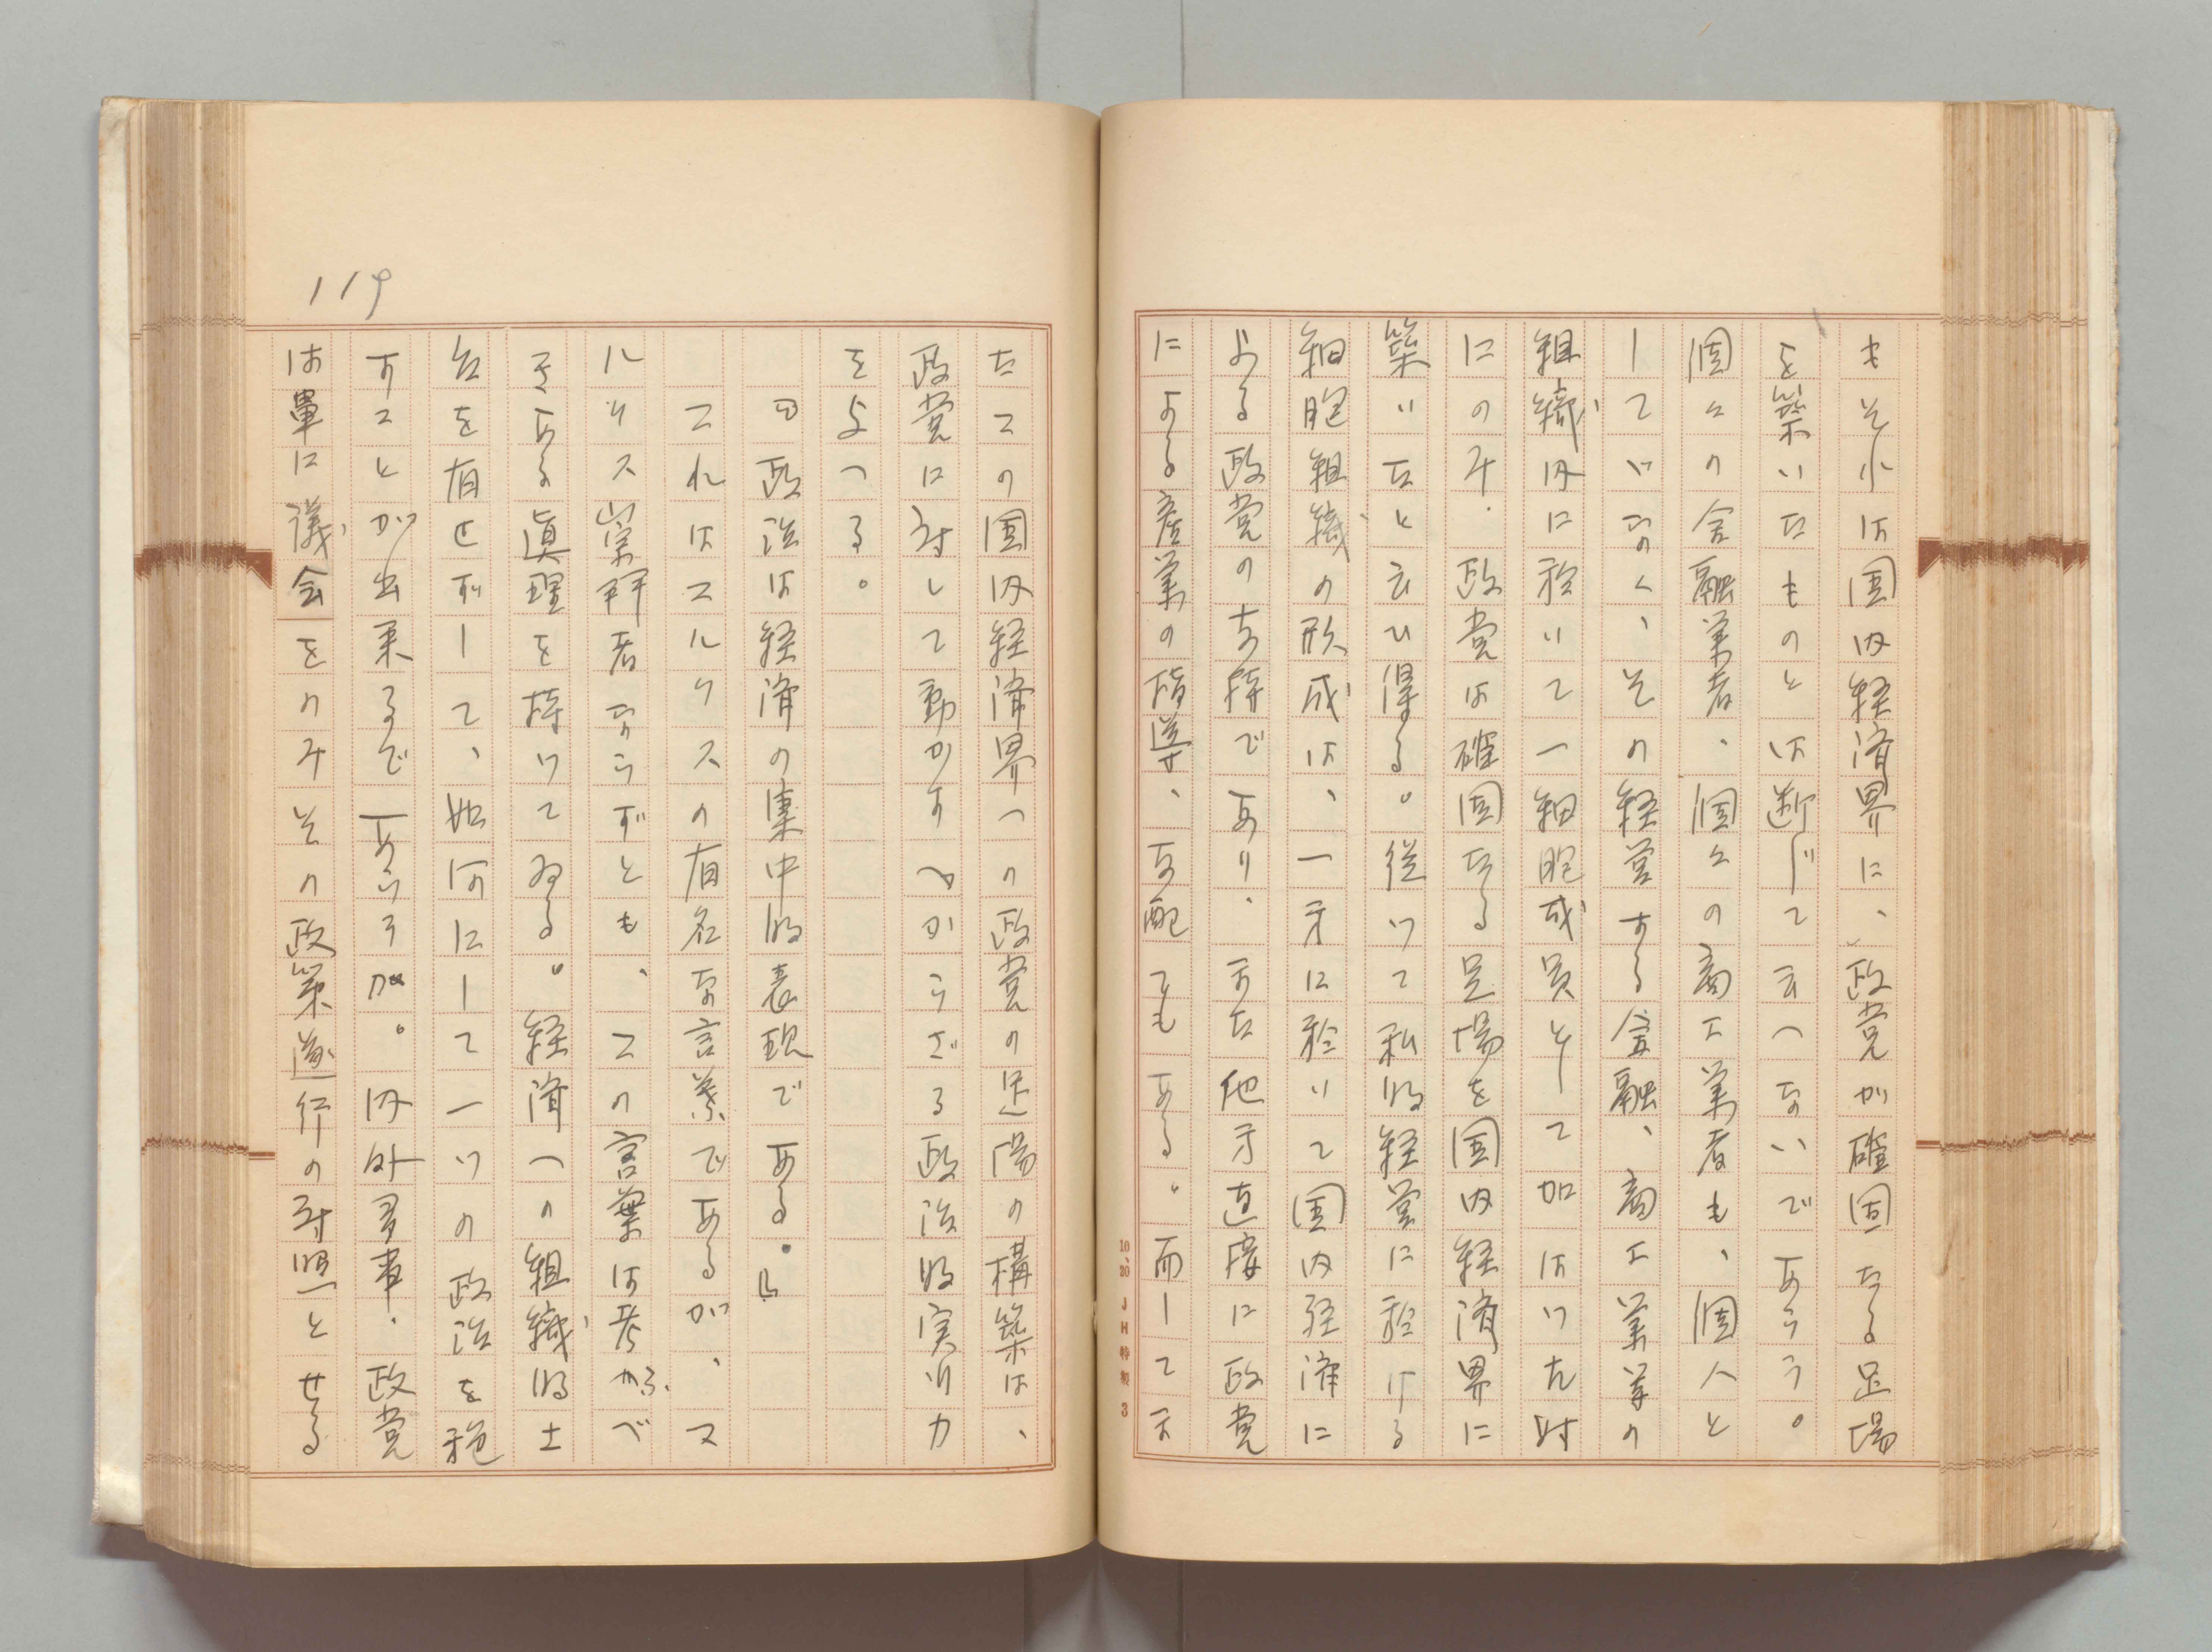 もそれは国内経済界に、政党が確固たる足場
を築いたものとは断じて云へないであらう。
個々の金融業者、個々の商工業者も、個人と
してゞなく、その経営する金融、商工業等の
組織内に於いて一細胞成員として加はつた時
にのみ、政党は確固たる足場を国内経済界に
築いたと云ひ得る。従つて私的経営に於ける
細胞組織の形成は、一方に於いて国内経済に
よる政党の支持であり、また他方直接に政党
による産業の指導、支配でもある。而してま
10、20 JH特製 3
たこの国内経済界への政党の足場の構築は、
政党に対して動かすべからざる政治的実力
を与へる。
『政治は経済の集中的表現である。』
これはコルリスの有名な言葉であるが、コ
ルリス崇拝者ならずとも、この言葉は考ふべ
きある真理を持つてゐる。経済への組織的土
台を有せずして、如何にして一つの政治を施
すことが出来るであらうか。内外多事、政党
は単に議会をのみその政策遂行の対照とせる
119